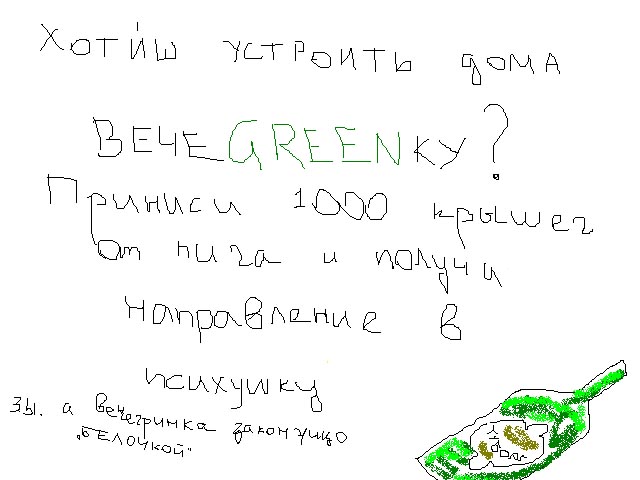 ХОТИШ УСТРОИТЬ ДОМА
ВЕЧЕGREENКУ?
Приниси 1000 крышег
от пига и получи
направление в
психушку
З.Ы. а вечегринка закончицо
"БЕЛОЧКОЙ"